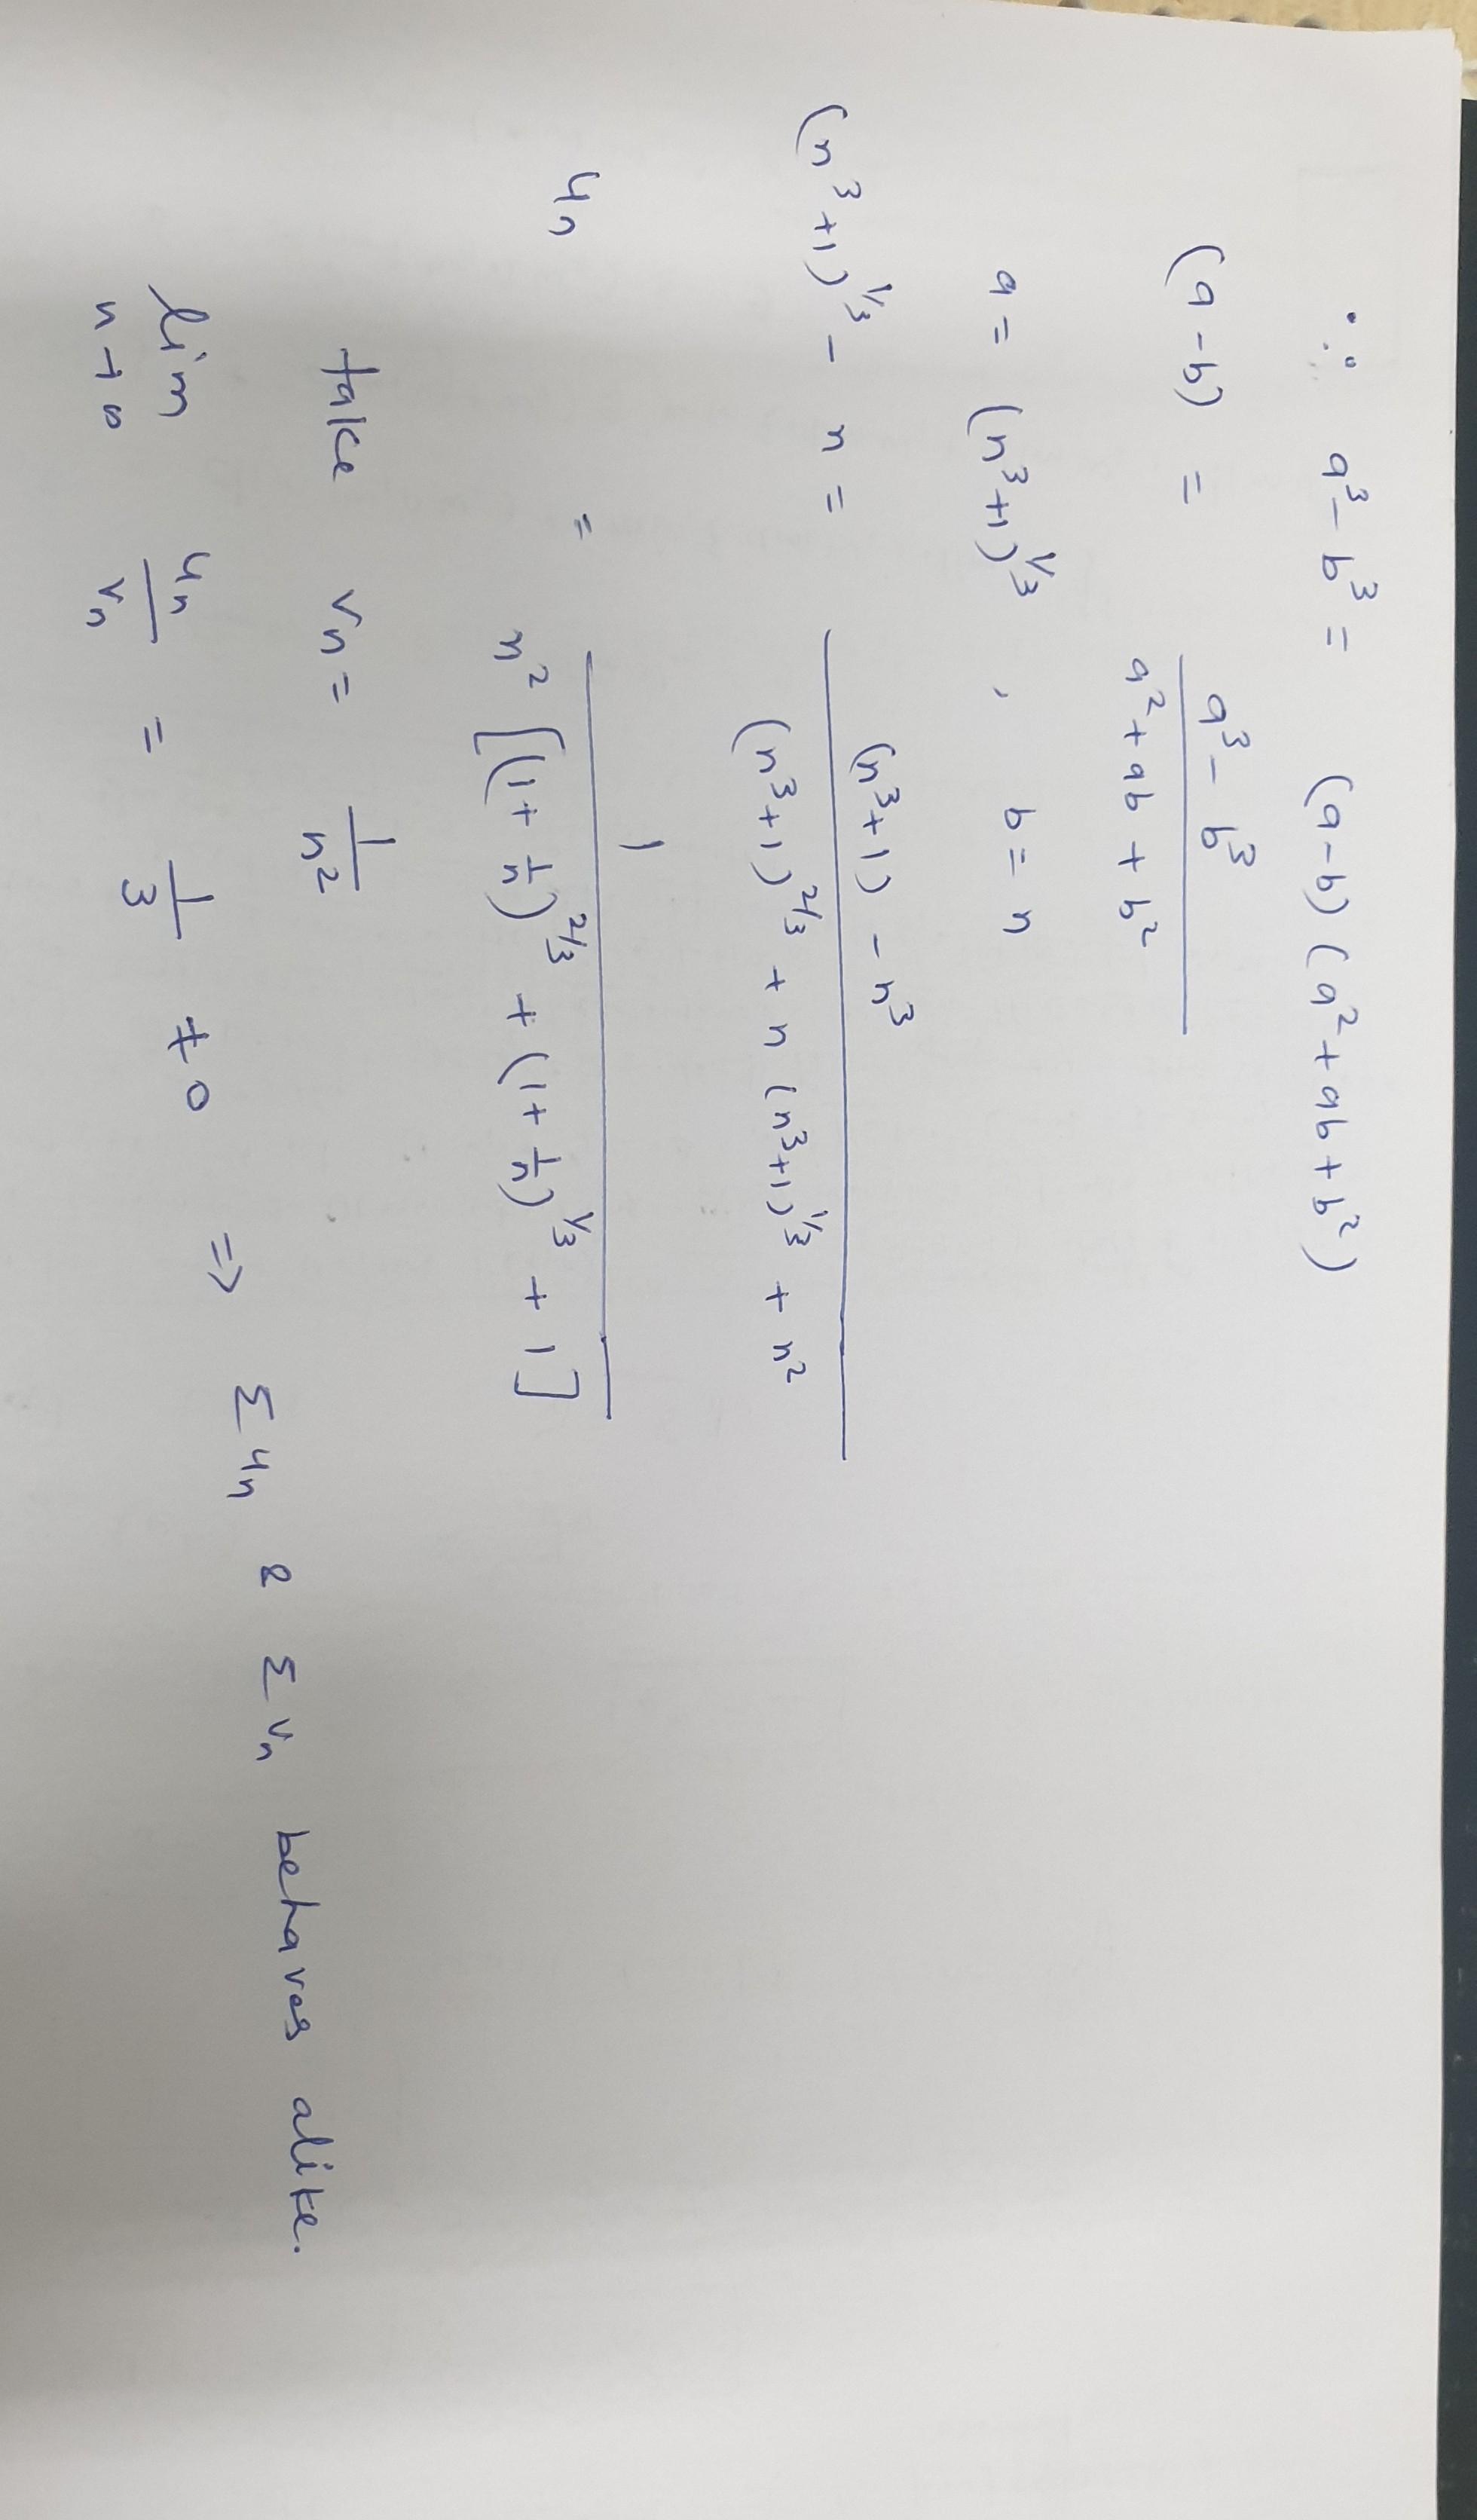 ∵ a³ - b³ = (a-b) (a² + ab + b²)
(a-b) = (a³ - b³)/(a² + ab + b²)
a = (n³+1)^(1/3) , b = n
(n³+1)^(1/3) - n = ((n³+1) - n³)/((n³+1)^(2/3) + n (n³+1)^(1/3) + n²)
uₙ = 1/(n² [(1+ 1/n)^(2/3) + (1+ 1/n)^(1/3) + 1])
take vₙ = 1/n²
lim n→∞ uₙ/vₙ = 1/3 ≠ 0 ⇒ Σuₙ & Σvₙ behaves alike.